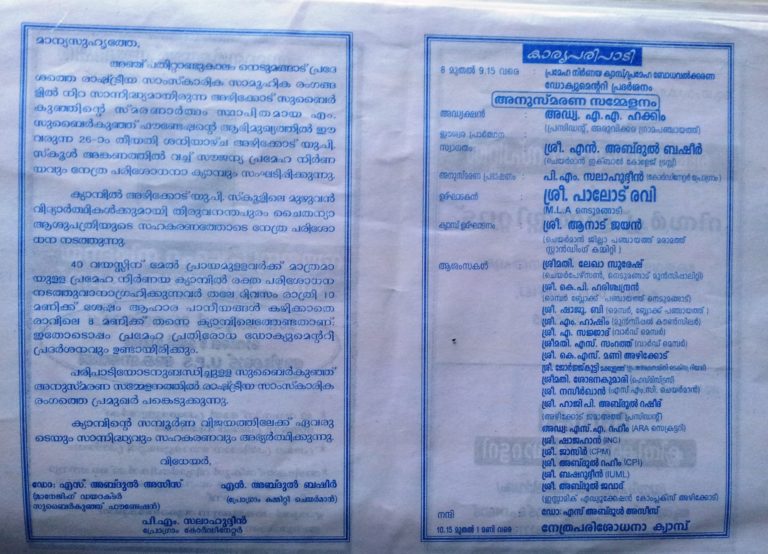 മാന്യസുഹൃത്തേ,
അഞ്ച് പതിറ്റാണ്ടുകാലം നെടുമങ്ങാട് പ്രദേ
ശത്തെ രാഷ്ട്രീയ സാംസ്കാരിക സാമൂഹിക രംഗങ്ങ
ളിൽ നിറ സാന്നിദ്ധ്യമായിരുന്ന അഴിക്കോട് സുബൈർ
കുഞ്ഞിന്റെ സ്മരണാർത്ഥം സ്ഥാപിതമായ എം.
സുബൈർകുഞ്ഞ് ഫൗണ്ടേഷന്റെ ആഭിമുഖ്യത്തിൽ ഈ
വരുന്ന 26-ാം തീയതി ശനിയാഴ്ച അഴിക്കോട് യു.പി.
സ്കൂൾ അങ്കണത്തിൽ വച്ച് സൗജന്യ പ്രമേഹ നിർണ
യവും നേത്ര പരിശോധനാ ക്യാമ്പും സംഘടിപ്പിക്കുന്നു.
ക്യാമ്പിൽ അഴിക്കോട് യു.പി. സ്കൂളിലെ മുഴുവൻ
വിദ്യാർത്ഥികൾക്കുമായി തിരുവനന്തപുരം ചൈതന്യാ
ആശുപത്രിയുടെ സഹകരണത്തോടെ നേത്ര പരിശോ
ധന നടത്തുന്നു.
40 വയസ്സിന് മേൽ പ്രായമുള്ളവർക്ക് മാത്രമാ
യുള്ള പ്രമേഹ നിർണയ ക്യാമ്പിൽ രക്ത പരിശോധന
നടത്തുവാനാഗ്രഹിക്കുന്നവർ തലേ ദിവസം രാത്രി 10
മണിക്ക് ശേഷം ആഹാര പാനീയങ്ങൾ കഴിക്കാതെ
രാവിലെ 8 മണിക്ക് തന്നെ ക്യാമ്പിലെത്തേണ്ടതാണ്.
ഇതോടൊപ്പം പ്രമേഹ പ്രതിരോധ ഡോക്യുമെന്ററി
പ്രദർശനവും ഉണ്ടായിരിക്കും.
പരിപാടിയോടനുബന്ധിച്ചുള്ള സുബൈർകുഞ്ഞ്
അനുസ്മരണ സമ്മേളനത്തിൽ രാഷ്ട്രീയ സാംസ്കാരിക
രംഗത്തെ പ്രമുഖർ പങ്കെടുക്കുന്നു.
ക്യാമ്പിന്റെ സമ്പൂർണ വിജയത്തിലേക്ക് ഏവരു
ടെയും സാന്നിദ്ധ്യവും സഹകരണവും അഭ്യർത്ഥിക്കുന്നു.
വിധേയർ,
ഡോ: എസ്. അബ്ദുൽ അസീസ് എൻ. അബ്ദുൽ ബഷീർ
(മാനേജിംഗ് ഡയറക്ടർ (പ്രോഗ്രാം കമ്മിറ്റി ചെയർമാൻ)
സുബൈർകുഞ്ഞ് ഫൗണ്ടേഷൻ)
പി.എം. സലാഹുദ്ദീൻ
പ്രോഗ്രാം കോർഡിനേറ്റർ
കാര്യപരിപാടി
8 മുതൽ 9.15 വരെ : പ്രമേഹ നിർണയ ക്യാമ്പ്/പ്രമേഹ ബോധവൽക്കരണ
ഡോക്യുമെന്ററി പ്രദർശനം
അനുസ്മരണ സമ്മേളനം
അദ്ധ്യക്ഷൻ : അഡ്വ. എ.എ. ഹക്കീം
(പ്രസിഡന്റ്, അരുവിക്കര ഗ്രാമപഞ്ചായത്ത്)
ഈശ്വര പ്രാർഥന :
സ്വാഗതം : ശ്രീ. എൻ. അബ്ദുൽ ബഷീർ
(ചെയർമാൻ ഇക്ബാൽ കോളേജ് ട്രസ്റ്റ്)
അനുസ്മരണ പ്രഭാഷണം : പി.എം. സലാഹുദ്ദീൻ (കോർഡിനേറ്റർ പ്രോഗ്രാം)
ഉദ്ഘാടകൻ : ശ്രീ. പാലോട് രവി
(M.L.A നെടുമങ്ങാട്)
ക്യാമ്പ് ഉദ്ഘാടനം : ശ്രീ. ആനാട് ജയൻ
(ചെയർമാൻ ജില്ലാ പഞ്ചായത്ത് മരാമത്ത്
സ്റ്റാൻഡിംഗ് കമ്മിറ്റി )
ആശംസകൾ : ശ്രീമതി. ലേഖാ സുരേഷ്
(ചെയർപേഴ്സൺ, നെടുമങ്ങാട് മുൻസിപ്പാലിറ്റി)
ശ്രീ. കെ.പി. ഹരിശ്ചന്ദ്രൻ
(മെമ്പർ ബ്ലോക്ക് പഞ്ചായത്ത് നെടുമങ്ങാട്)
ശ്രീ. ഷാജു. ബി (മെമ്പർ, ബ്ലോക്ക് പഞ്ചായത്ത് )
ശ്രീ. എം. ഹാഷിം (മുൻസിപ്പൽ കൗൺസിലർ)
ശ്രീ. എ. സജ്ജാദ് (വാർഡ് മെമ്പർ)
ശ്രീമതി. എസ്. സംഗത്ത് (വാർഡ് മെമ്പർ)
ശ്രീ. കെ.എസ്. മണി അഴിക്കോട്
ശ്രീ. ജോർജ്ജുകുട്ടി
ശ്രീമതി. ശോഭനകുമാരി (ഹെഡ്മിസ്ട്രസ്)
ശ്രീ. നസീർഖാൻ (എസ്.എം.സി. ചെയർമാൻ)
ശ്രീ. ഹാജി പി. അബ്ദുൽ റഷീദ്
(അഴിക്കോട് ജമാഅത്ത് പ്രസിഡന്റ്)
അഡ്വ: എസ്.എ. റഹീം (ARA സെക്രട്ടറി)
ശ്രീ. ഷാജഹാൻ (INC)
ശ്രീ. ജാസിർ (CPM)
ശ്രീ. അബ്ദുൽ റഹീം (CPI)
ശ്രീ. ബഷറുദ്ദീൻ (IUML)
ശ്രീ. അബ്ദുൽ ജവാദ്
(ഇസ്ലാമിക് എഡ്യൂക്കേഷൻ കോംപ്ലക്സ് അഴിക്കോട്)
നന്ദി : ഡോ: എസ് അബ്ദുൾ അസീസ്
10.15 മുതൽ 1 മണി വരെ : നേത്രപരിശോധനാ ക്യാമ്പ്